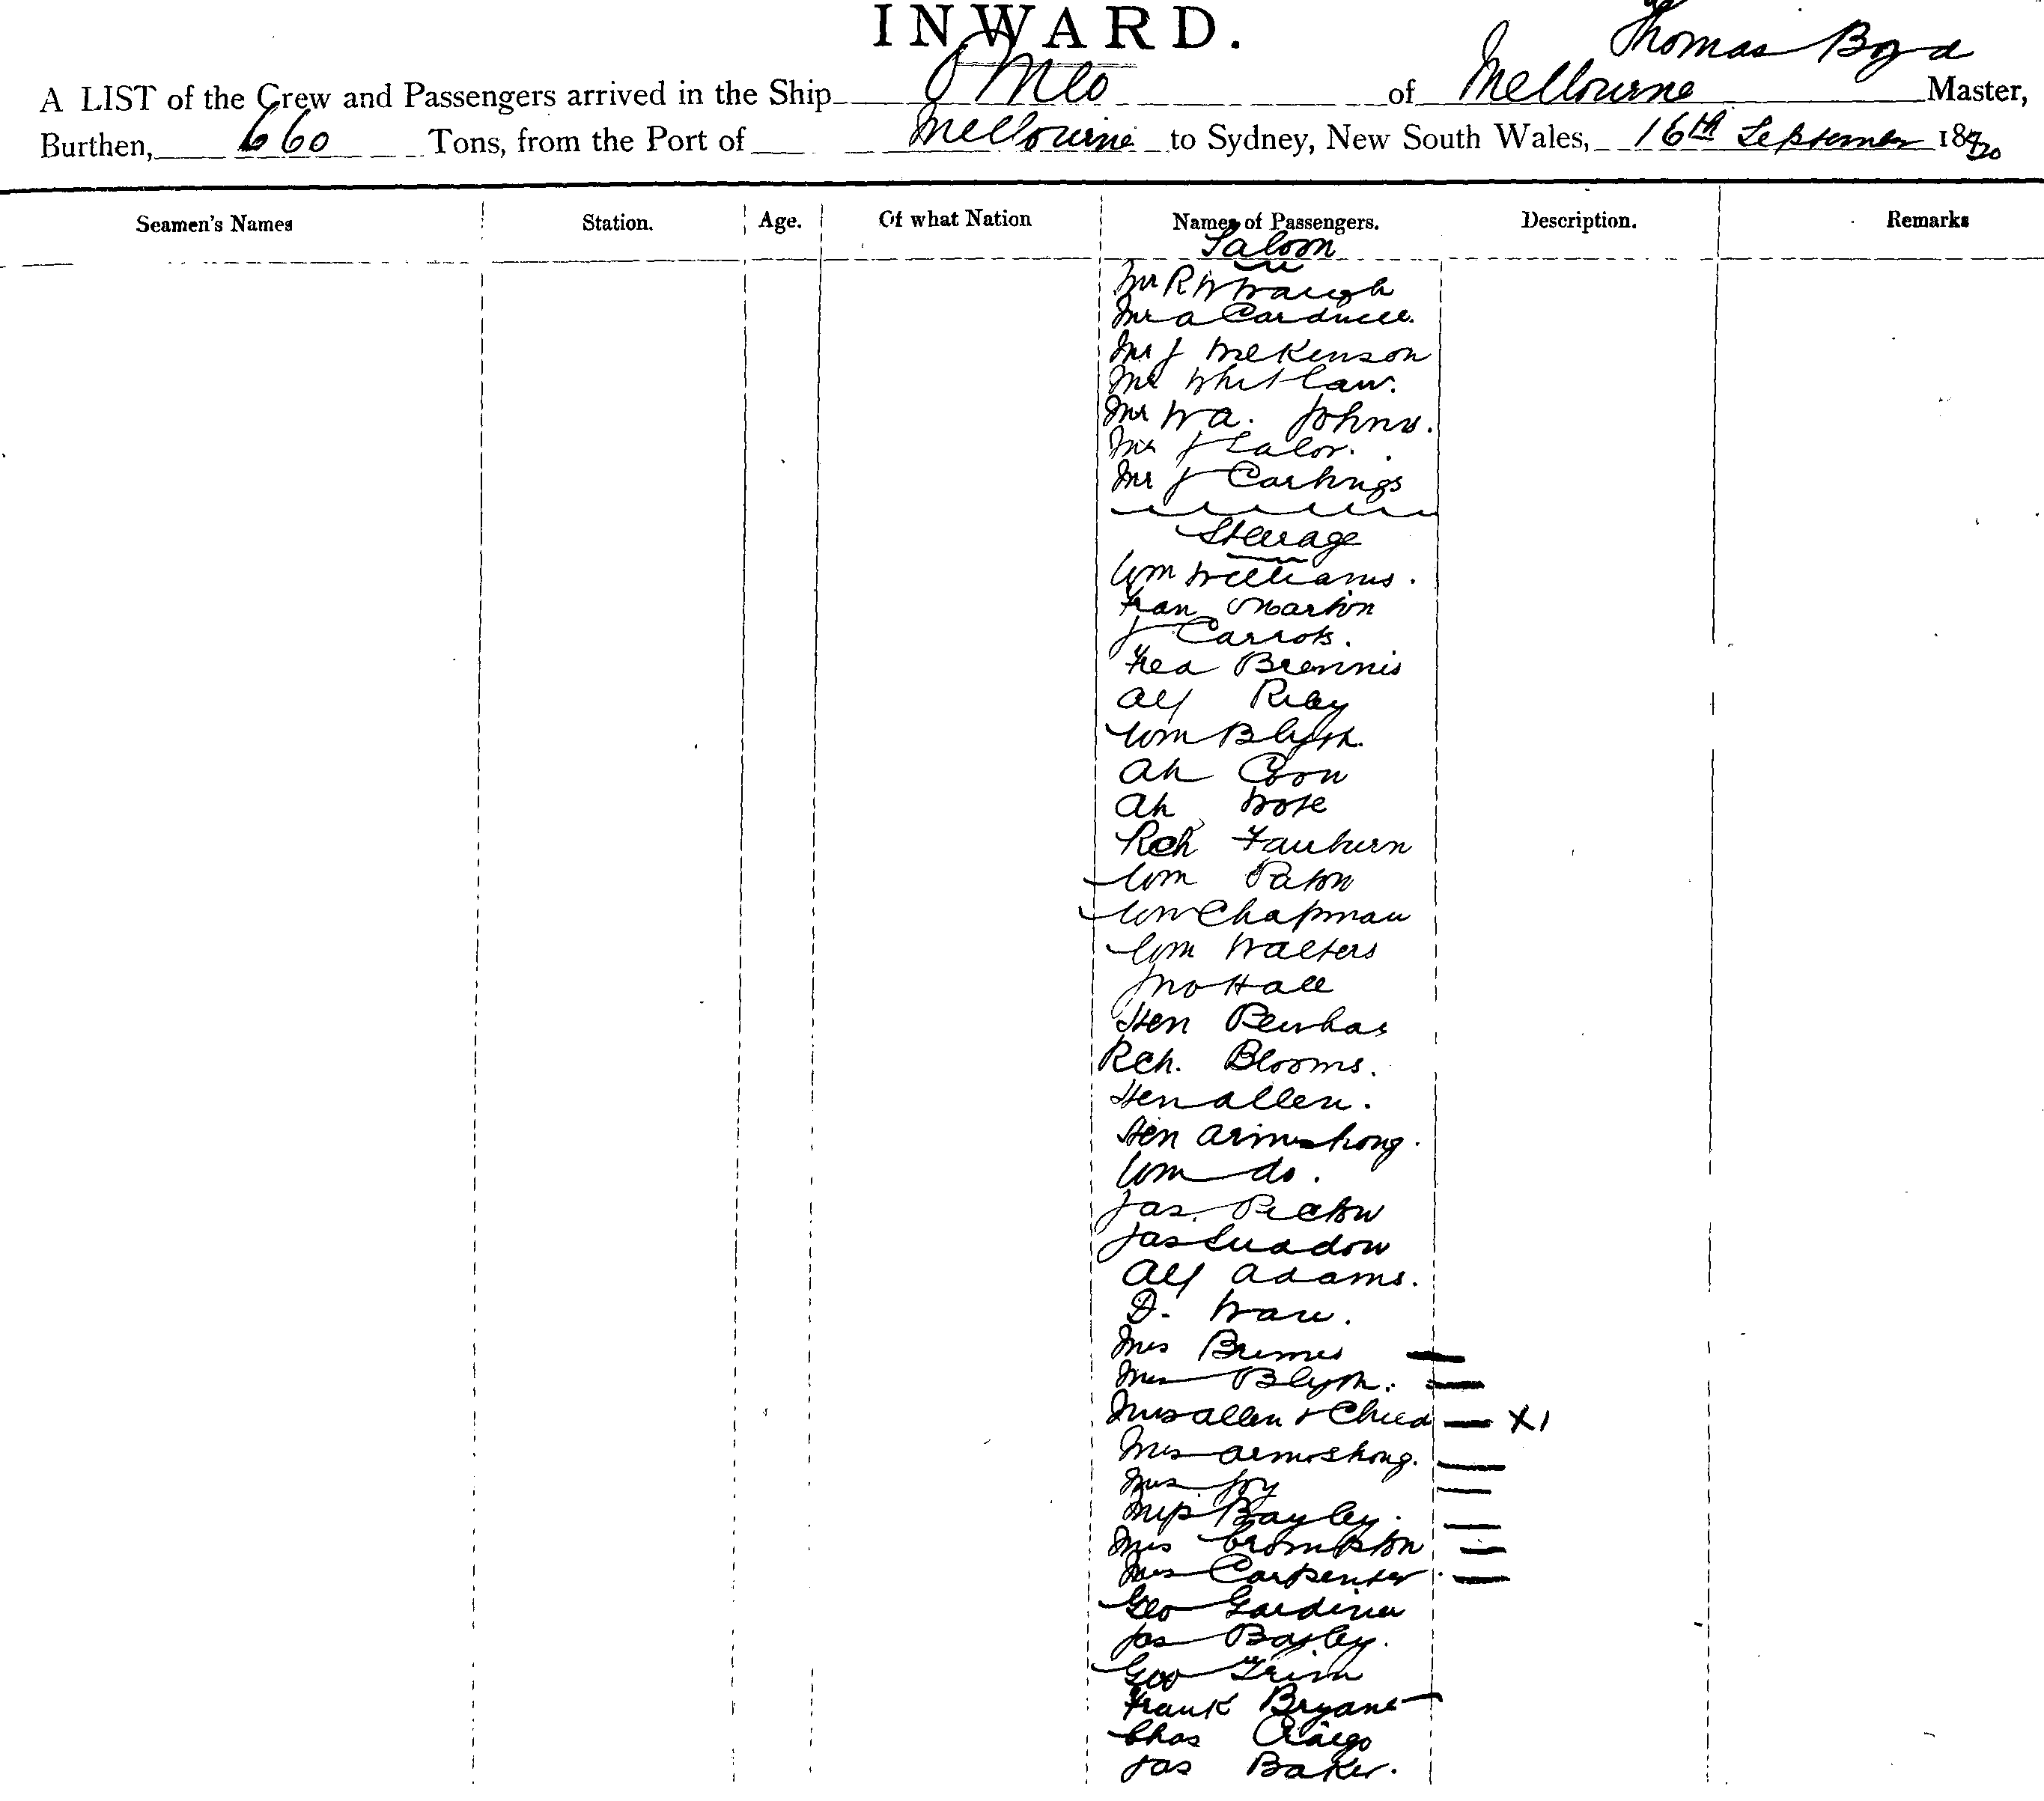 INWARD.
Thomas Boyd
A LIST of the Crew and Passengers arrived in the Ship Omeo of Melbourne Master,
Burthen, 660 Tons, from the Port of Melbourne to Sydney, New South Wales, 16th September 1870
Seamen's Names Station. Age. Of what Nation Names of Passengers. Description. Remarks
Saloon
Mr R W Waugh
Mr A Cardwell.
Mr J McKenson
Mr Whitlaw.
Mr W A. Johns.
Mr J Lalor.
Mr J Cartings
Steerage
Wm Williams.
Fran Martin
J Carrots.
Fred Brennis
Alf Riley
Wm Blyth.
Ah Coon
Ah
Rch Fairburn
Wm Paton
Wm Chapman
Wm Walters
Jno Hall
Hen
Rch. Blooms.
Hen Allen.
Hen Armstrong.
Wm do.
Jas. Picton
Jas
Alf Adams.
D. Ware.
Mrs
Mrs Blyth.
Mrs Allen & Child X1
Mrs Armstrong.
Mrs Joy
Miss Bayley.
Mrs Crompton
Mrs Carpenter
Geo Gardiner
Jas Bayley.
Geo Grim
Frank Bryant
Chas Craigo
Jas Baker.